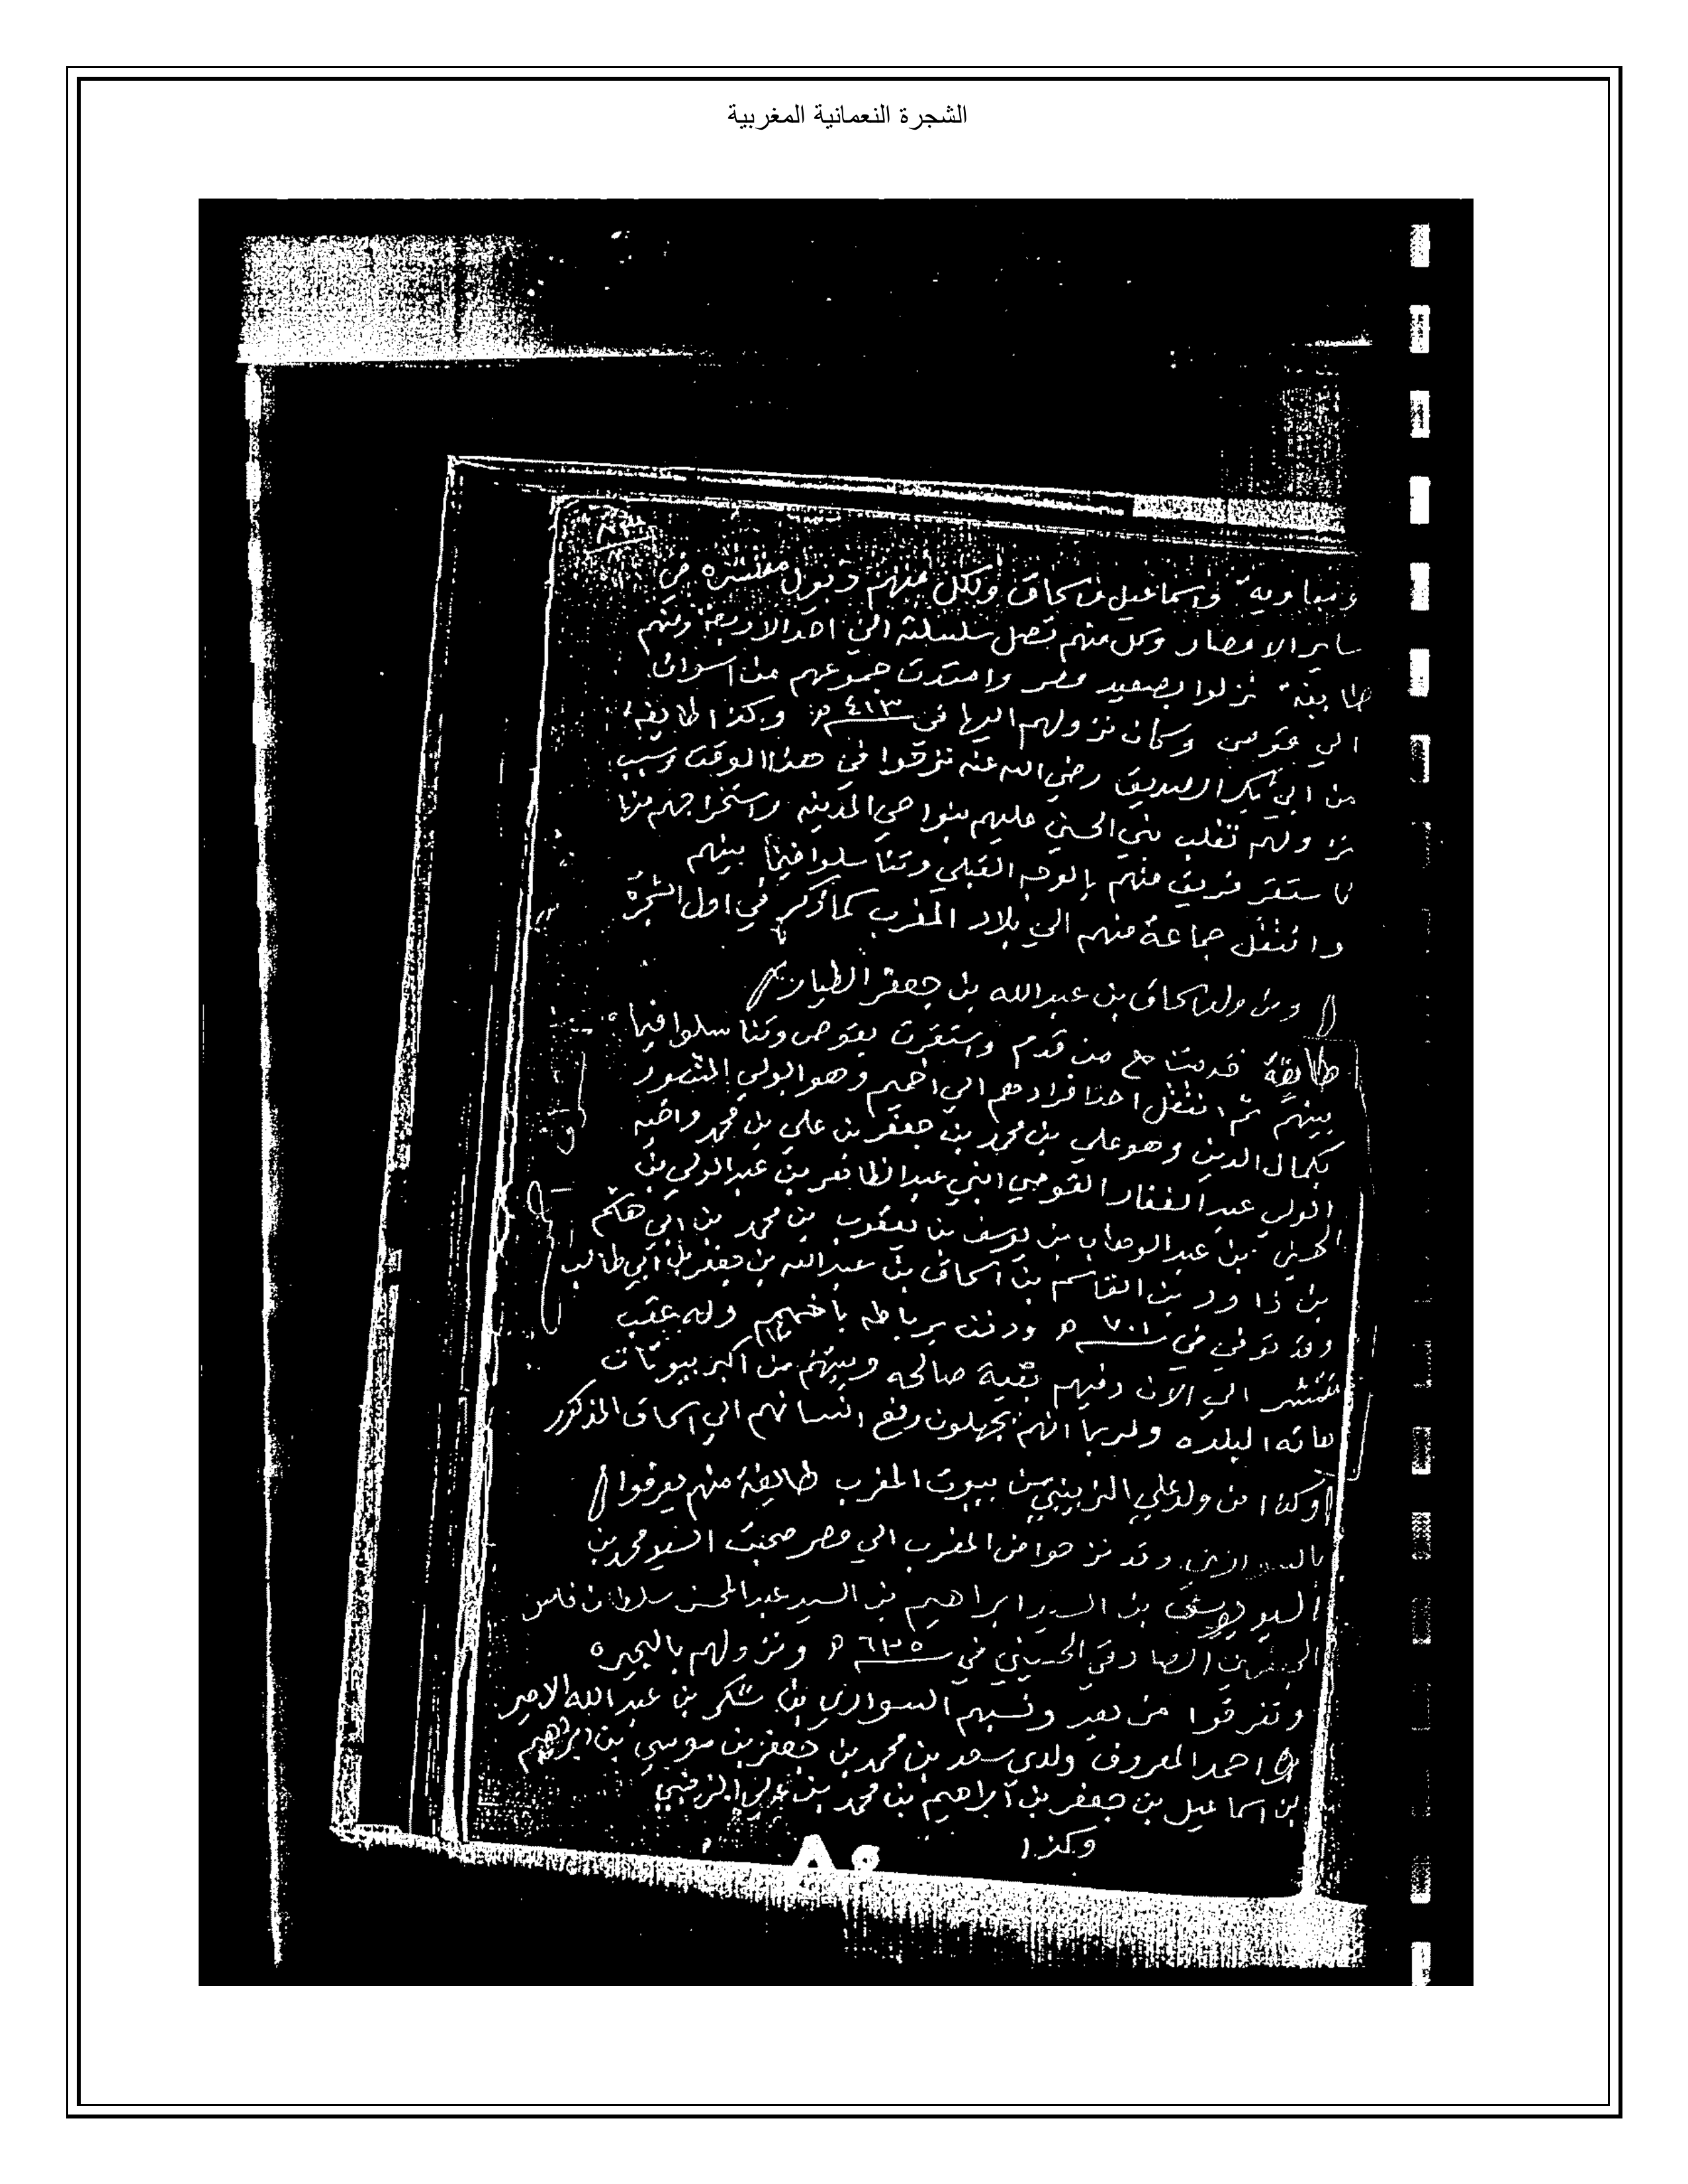 الشجرة النعمانية المغربية
ومعاوية واسماعيل واسحاق ولكل منهم ذيول منتشره في
ساير الامصار وكل منهم تصل سلسلته الي احد الاربعة ومنهم
طايفة نزلوا بصعيد مصر وامتدت جموعهم من اسوان
الي قوص وكان نزولهم اليها في ٤١٣ ه وكذا طايفة
من ابي بكر الصديق رضي الله عنه نزقوا في هذا الوقت وسبب
نزولهم تغلب بني الحسن عليهم بنواحي المدينه واستخراجهم منها
فاستقر فريق منهم بالوجه القبلي وتناسلوا فيما بينهم
وانتقل جماعة منهم الي بلاد المغرب كما ذكر في اول الشجرة
ومن ولد اسحاق بن عبدالله بن جعفر الطيار
طائفة قدمت مع من قدم واستقرت بقوص وتناسلوا فيما
بينهم ثم انتقل احد افرادهم الي اخميم وهو الولي المنصور
بكمال الدين وهو علي بن محمد بن جعفر بن علي بن محمد واخيه
الولي عبد الغفار القوصي ابني عبد الظافر بن عبد الولي بن
بن عبد الوهاب بن يوسف بن يعقوب بن محمد بن ابي هاشم
بن داود بن القاسم بن اسحاق بن عبدالله بن جعفر بن ابي طالب
وقد توفي في ٧٠١ ه ودفن برباطه باخميم وله عقب
منتشر الي الآن وفيهم بقية صالحه وبيتهم من اكبر بيوتات
هاته البلده ولربما انهم يجهلون رفع انسابهم الي اسحاق المذكور
وكذا من ولد علي الزينبي من بيوت المغرب طايفة منهم يعرفوا
وقد نزحوا من المغرب الي مصر صحبت السيد محمد بن
السيد يوسف بن السيد ابراهيم بن السيد عبد المحسن سلطان فاس
الصادقي الحسيني في ٦٣٥ ه ونزولهم بالبحيره
وتفرقوا من بعد ونسبهم السواري بن شكر بن عبد الله الامير
بن احمد المعروف ولدى سعد بن محمد بن جعفر بن موسي بن ابراهيم
بن اسماعيل بن جعفر بن ابراهيم بن محمد بن علي الزينبي
وكذا